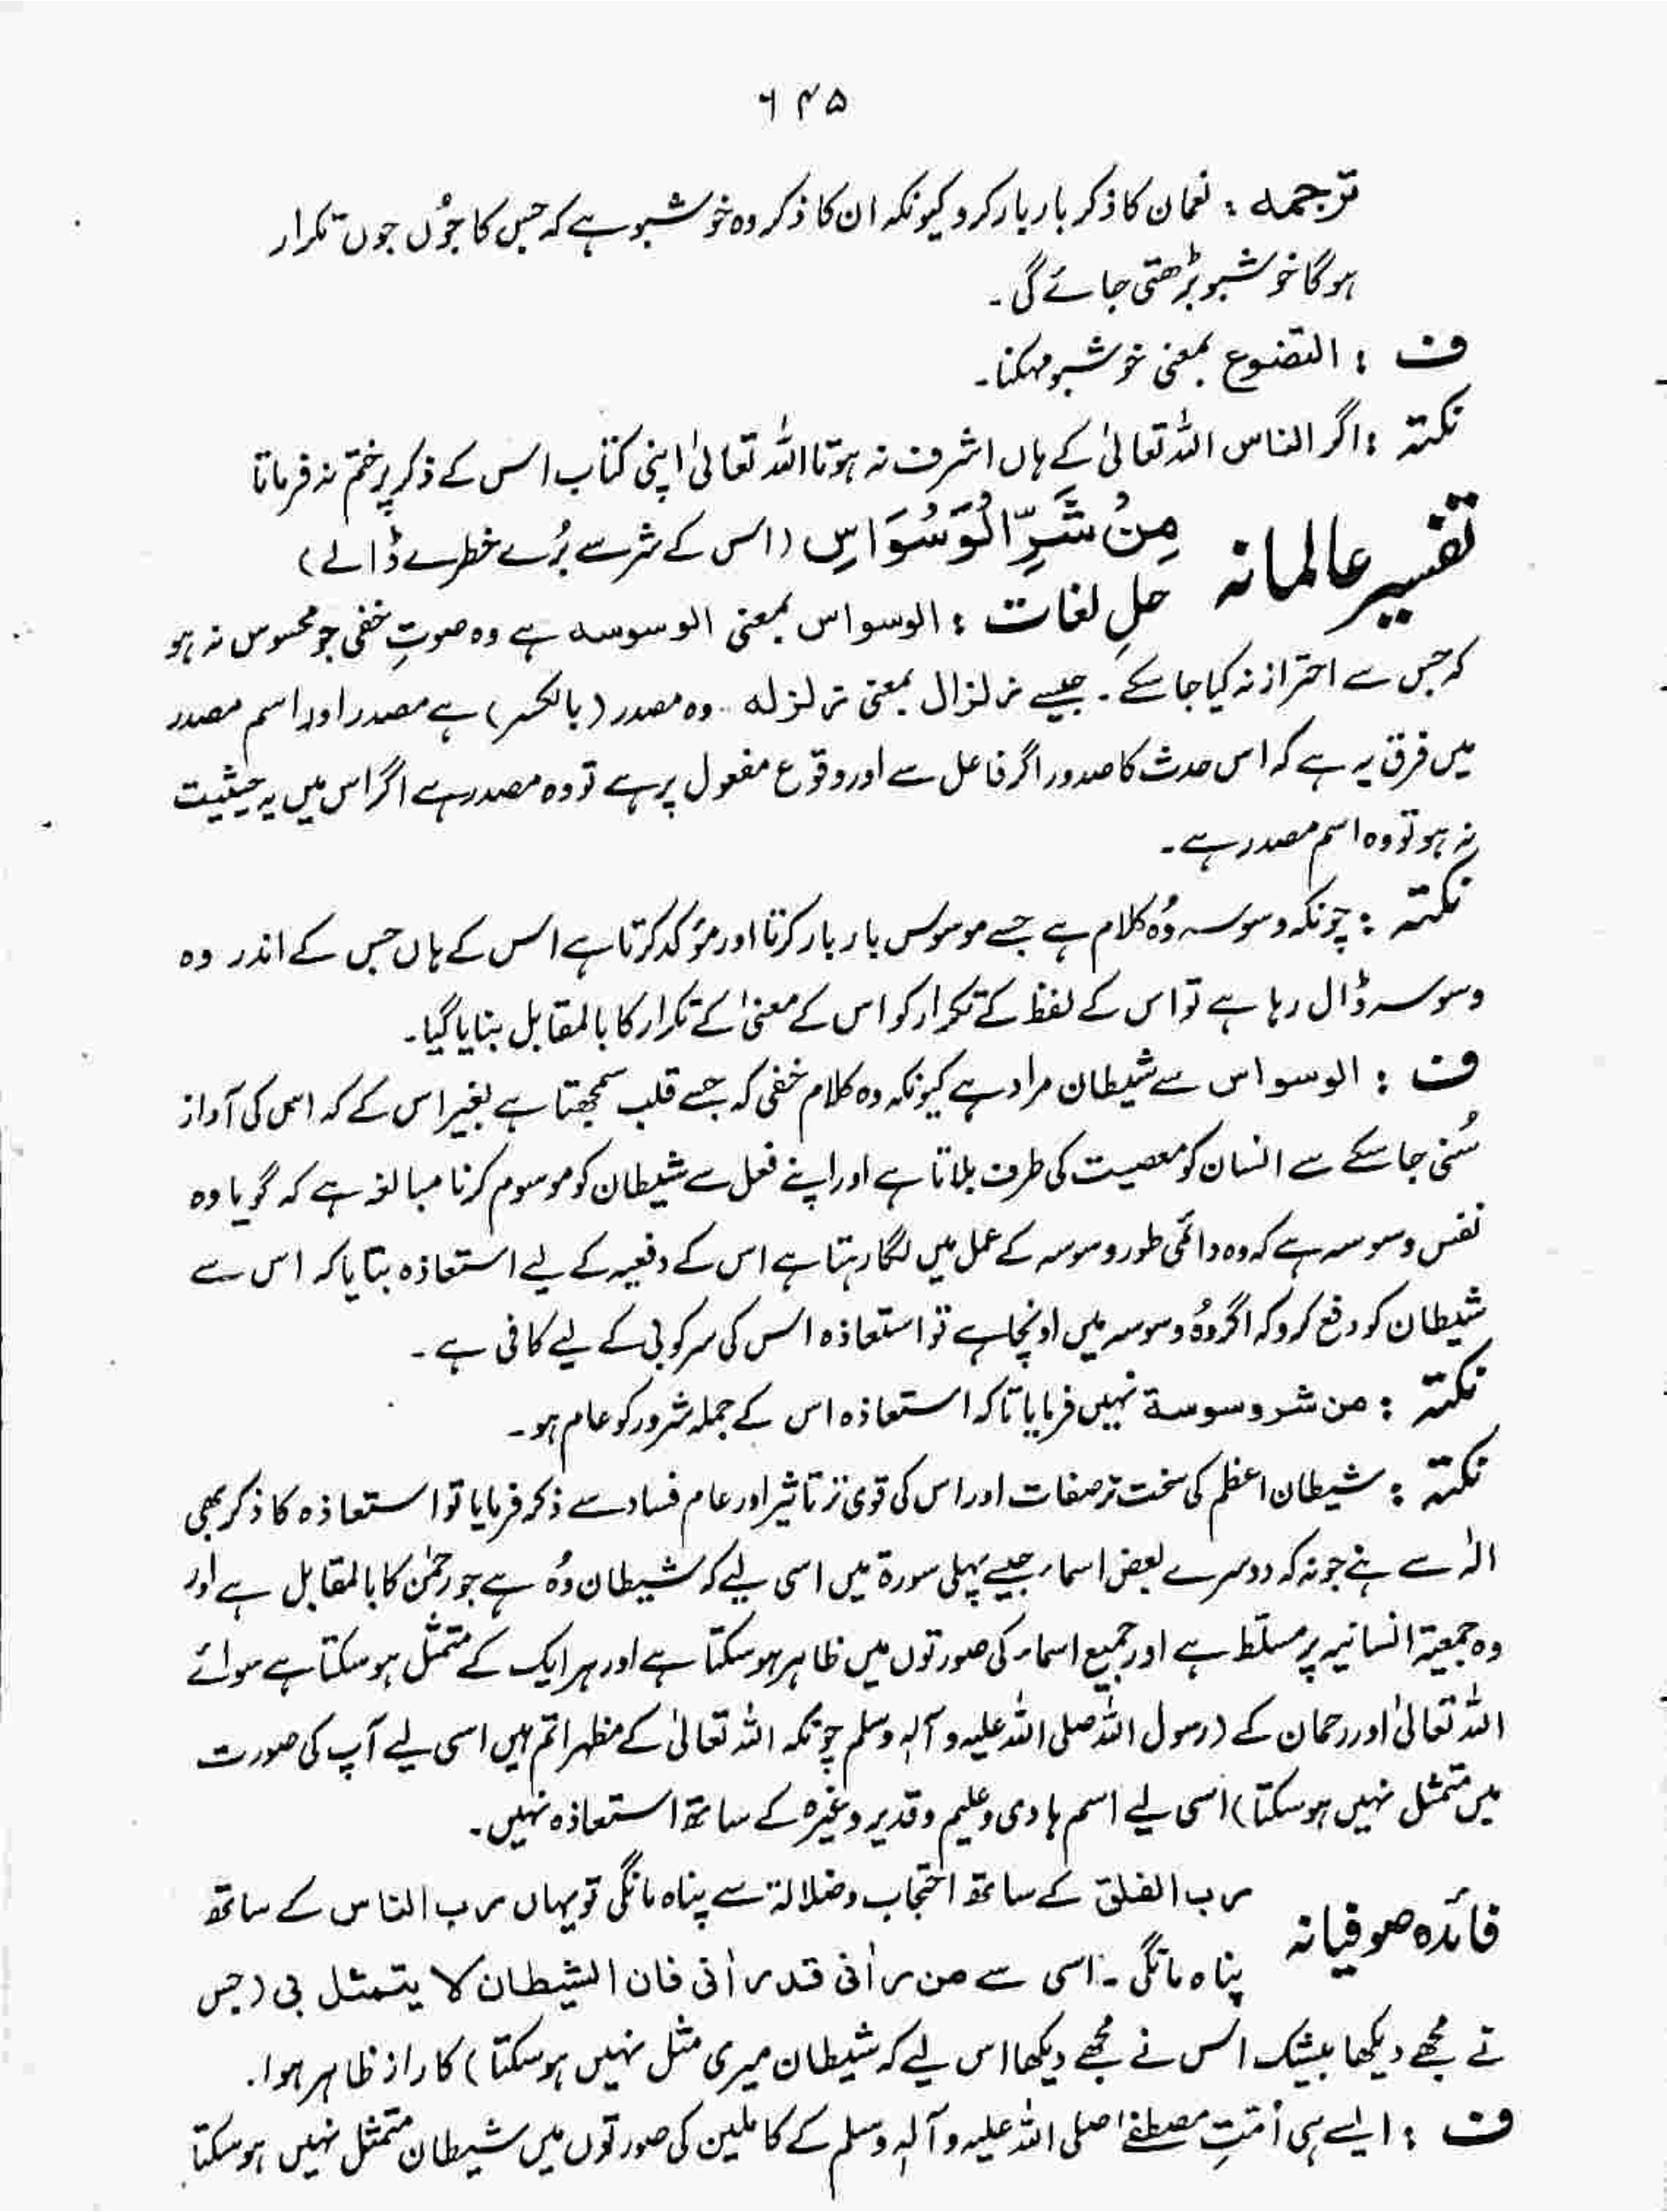 ۶۴۵
ترجمہ : نعمان کا ذکر بار بار کرو کیونکہ ان کا ذکر وہ خوشبو ہے کہ جس کا جُوں جوں تکرار
ہوگا خوشبو بڑھتی جائے گی۔
ف : التضوع بمعنی خوشبو مہکنا۔
نکتہ : اگر الناس اللہ تعالیٰ کے ہاں اشرف نہ ہوتا اللہ تعالیٰ اپنی کتاب اس کے ذکر پر ختم نہ فرماتا
تفسیر عالمانہ مِنْ شَرِّ الْوَسْوَاسِ (اس کے شر سے بُرے خطرے ڈالے)
حلِ لغات : الوسواس بمعنی الوسوسہ ہے وہ صوتِ خفی جو محسوس نہ ہو
کہ جس سے احتراز نہ کیا جا سکے۔ جیسے زلزال بمعنی زلزلہ۔ وہ مصدر (بالکسر) ہے مصدر اور اسم مصدر
میں فرق یہ ہے کہ اس حدث کا صدور اگر فاعل سے اور وقوع مفعول پر ہے تو وہ مصدر ہے اگر اس میں یہ حیثیت
نہ ہو تو وہ اسم مصدر ہے۔
نکتہ : چونکہ وسوسہ وُہ کلام ہے جسے موسوس بار بار کرتا اور مؤکد کرتا ہے اس کے ہاں جس کے اندر وہ
وسوسہ ڈال رہا ہے تو اس کے لفظ کے تکرار کو اس کے معنیٰ کے تکرار کا بالمقابل بنایا گیا۔
ف : الوسواس سے شیطان مراد ہے کیونکہ وہ کلام خفی کہ جسے قلب سمجھتا ہے بغیر اس کے کہ اس کی آواز
سُنی جا سکے سے انسان کو معصیت کی طرف بلاتا ہے اور اپنے فعل سے شیطان کو موسوم کرنا مبالغہ ہے کہ گویا وہ
نفس وسوسہ ہے کہ وہ دائمی طور وسوسہ کے عمل میں لگا رہتا ہے اس کے دفعیہ کے لیے استعاذہ بتایا کہ اس سے
شیطان کو دفع کرو کہ اگر وُہ وسوسہ میں اونچا ہے تو استعاذہ اس کی سرکوبی کے لیے کافی ہے۔
نکتہ : من شر وسوسة نہیں فرمایا تاکہ استعاذہ اس کے جملہ شرور کو عام ہو۔
نکتہ : شیطان اعظم کی سخت تر صفات اور اس کی قوی تر تاثیر اور عام فساد سے ذکر فرمایا تو استعاذہ کا ذکر بھی
الٰہ سے ہے جو نہ کہ دوسرے بعض اسماء جیسے پہلی سورۃ میں اسی لیے کہ شیطان وُہ ہے جو رحمٰن کا بالمقابل ہے اور
وہ جمعیۃ انسانیہ پر مسلّط ہے اور جمیع اسماء کی صورتوں میں ظاہر ہو سکتا ہے اور ہر ایک کے متمثّل ہو سکتا ہے سوائے
اللہ تعالیٰ اور رحمان کے (رسول اللہ صلی اللہ علیہ و آلہ وسلم چونکہ اللہ تعالیٰ کے مظہر اتم ہیں اسی لیے آپ کی صورت
میں متمثل نہیں ہو سکتا) اسی لیے اسم ہادی و علیم و قدیر وغیرہ کے ساتھ استعاذہ نہیں۔
فائدہ صوفیانہ رب الفلق کے ساتھ احتجاب و ضلالۃ سے پناہ مانگی تو یہاں رب الناس کے ساتھ
پناہ مانگی۔ اسی سے من راٰنی قد راٰنی فان الشیطان لا یتمثل بی (جس
نے مجھے دیکھا بیشک اس نے مجھے دیکھا اس لیے کہ شیطان میری مثل نہیں ہو سکتا) کا راز ظاہر ہوا۔
ف : ایسے ہی اُمّتِ مصطفےٰ صلی اللہ علیہ و آلہ وسلم کے کاملین کی صورتوں میں شیطان متمثل نہیں ہو سکتا